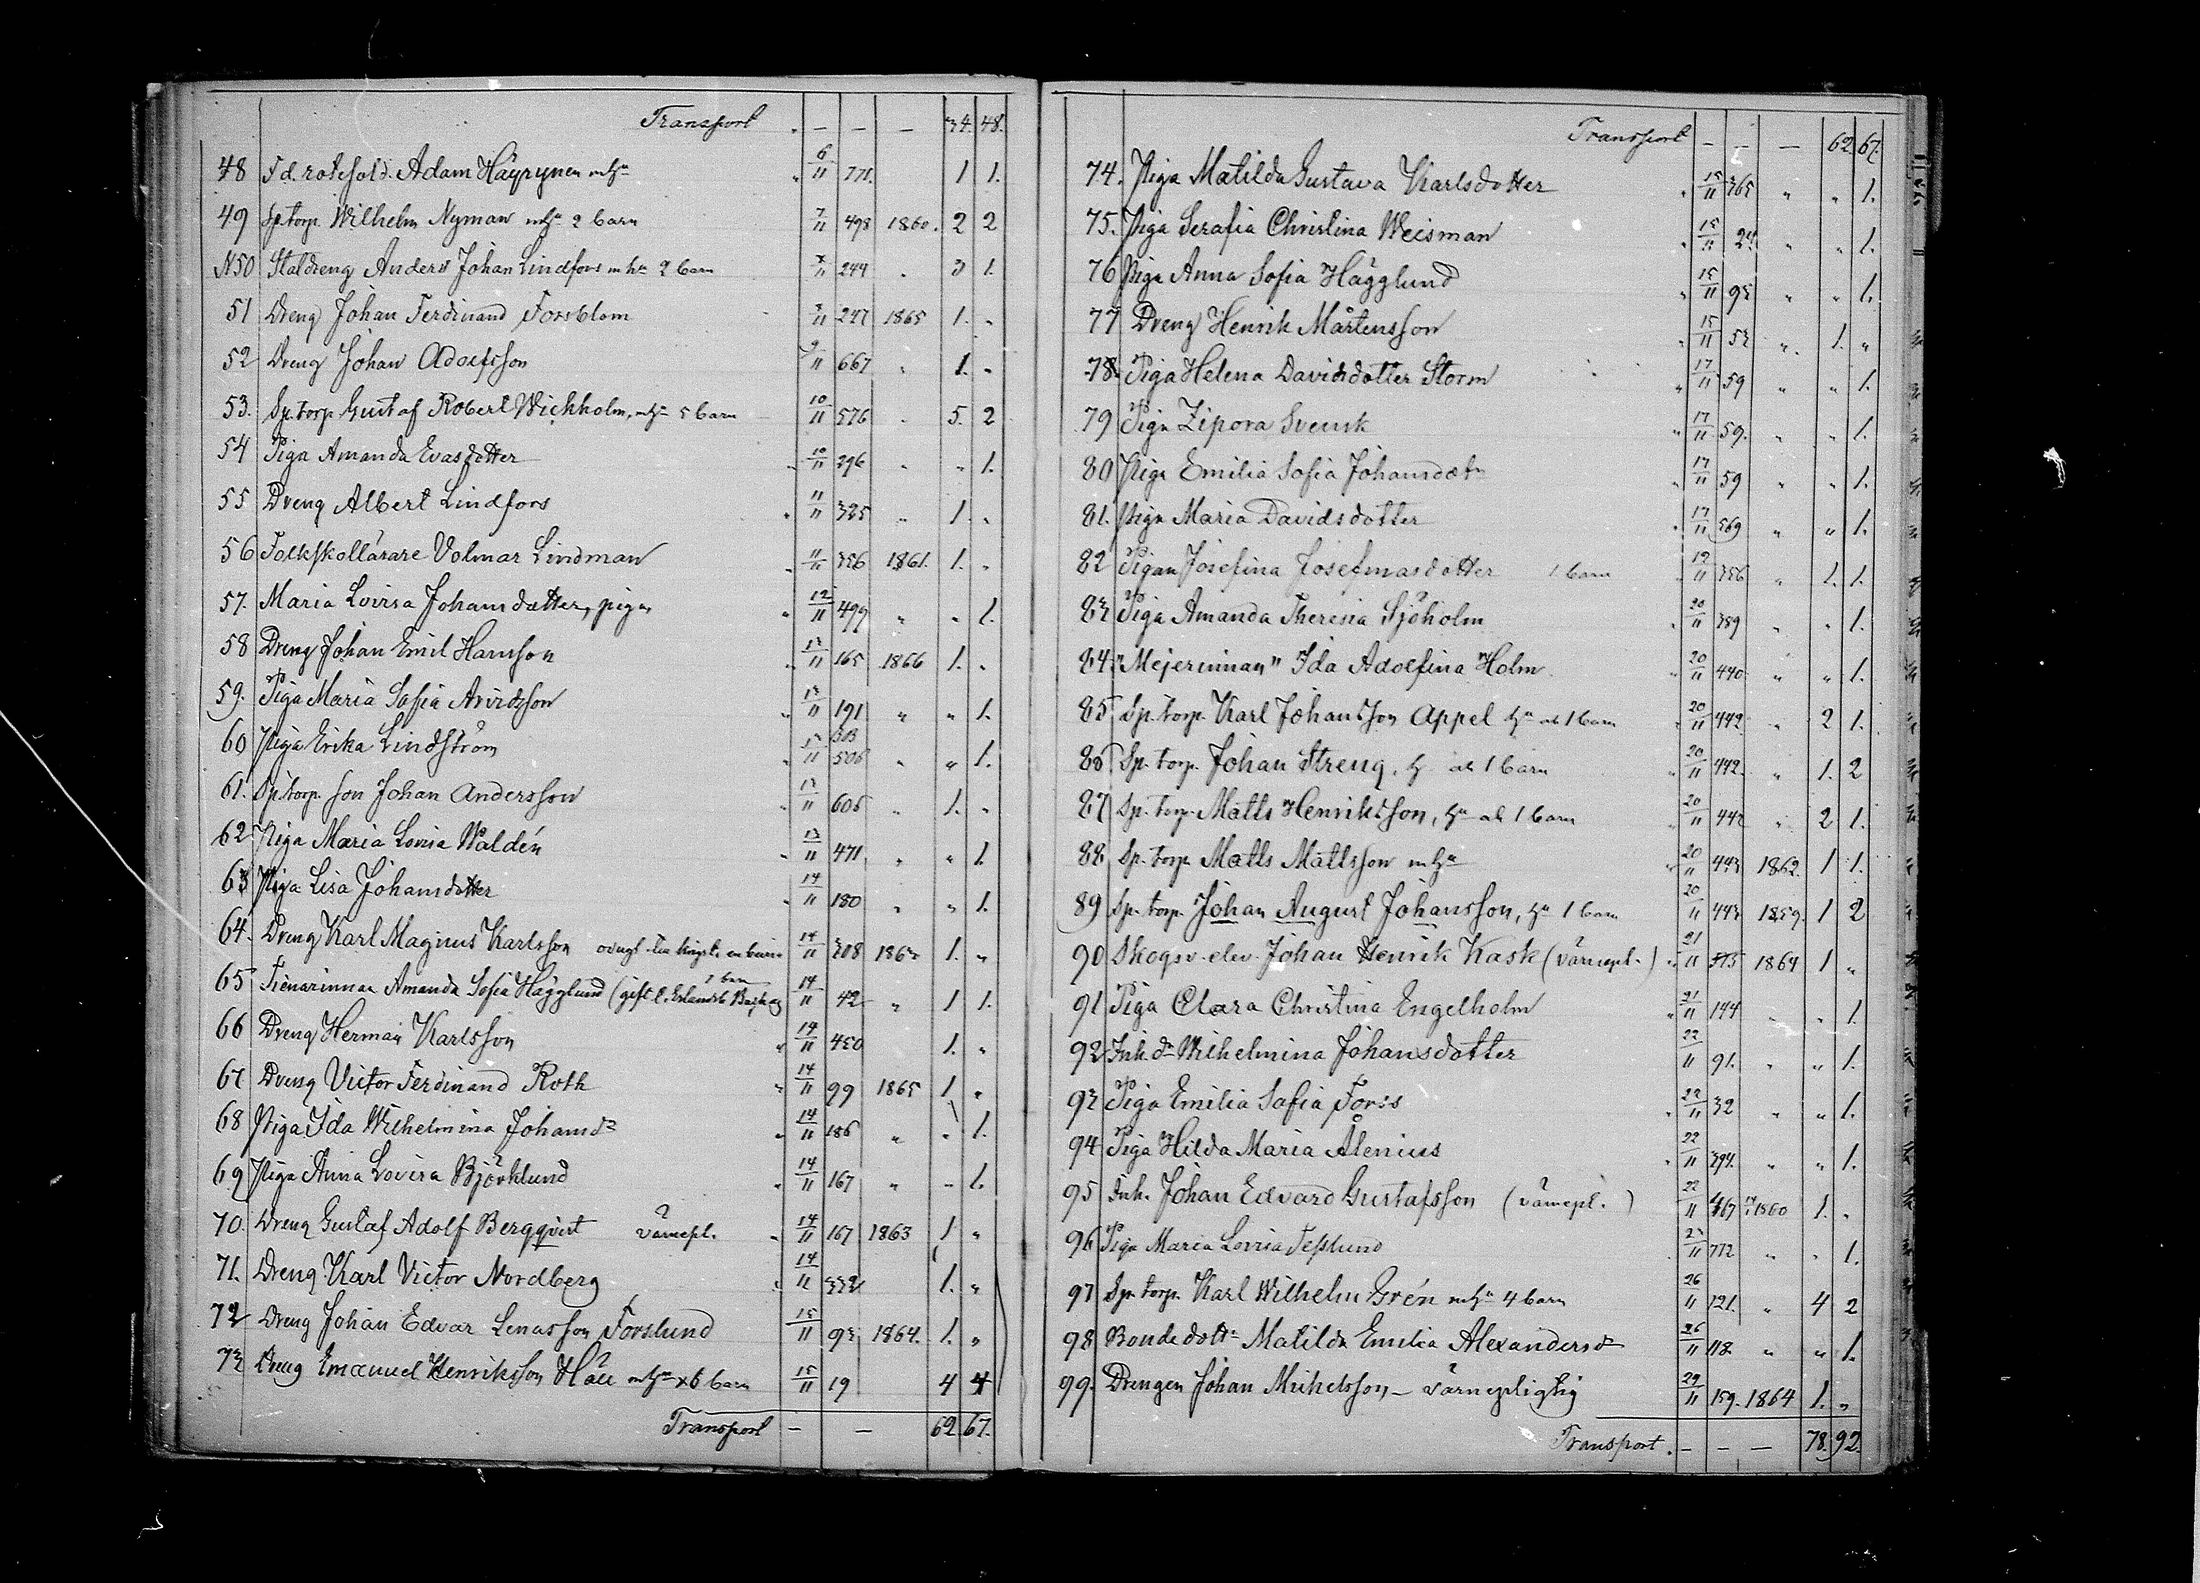 Transport " — — — 34. 48.
48 F.d. rotesold. Adam Häyrynen mhu " 6/11 771. 1 1.
49 Sp.torp. Wilhelm Nyman mhu 2 barn 7/11 498 1860. 2 2
N50 Staldreng Anders Johan Lindfors mhu 2 barn 244 " 3 1.
51 Dreng Johan Ferdinand Forsblom 247 1865 1. "
52 Dreng Johan Adolfsson 9/11 667 " 1. "
53. Sp.torp. Gustaf Robert Wickholm, mhu 5 barn 10/11 576 " 5. 2
54 Piga Amanda Evasdotter " 10/11 396 " " 1.
55 Dreng Albert Lindfors " 11/11 325 " 1. "
56 Folkskollärare Volmar Lindman " 11/11 356 1861. 1. "
57. Maria Lovisa Johansdotter, piga " 12/11 499 " " 1.
58 Dreng Johan Emil Hansson " 13/11 165 1866 1. "
59. Piga Maria Sofia Arvidsson " 13/11 191 " " 1.
60 Piga Erika Lindström " 13/11 506 " " 1.
61. Sp.torp. son Johan Andersson " 13/11 606 " 1. "
62 Piga Maria Lovisa Waldén " 13/11 471 " " 1.
63 Piga Lisa Johansdotter " 14/11 180 " " 1.
64. Dreng Karl Magnus Karlsson 14/11 308 186 1. "
65 Tienarinnan Amanda Sofia Hägglund 1 barn 14/11 42 " 1 1.
66 Dreng Herman Karlsson " 14/11 430 1. "
67 Dreng Victor Ferdinand Roth " 14/11 99 1865 1 "
68 Piga Ida Wilhelmina Johansdr " 14/11 186 " " 1.
69 Piga Anna Lovisa Björklund " 14/11 167 " " 1.
70. Dreng Gustaf Adolf Bergqvist värnepl. " 14/11 167 1863 1 "
71. Dreng Karl Victor Nordberg " 14/11 332 1. "
72 Dreng Johan Edvar Lenasson Forslund 15/11 93 1864. 1. "
73 Dreng Emanuel Henriksson mhu x 6 barn 15/11 19 4 4
Transport — — 62 67.
Transport — — — 62 67.
74. Piga Matilda Gustava Karlsdotter " 15/11 365 " " 1.
75. Piga Serafia Christina Weisman " 15/11 24 " " 1.
76 Piga Anna Sofia Hägglund " 15/11 93 " " 1.
77 Dreng Henrik Mårtensson " 15/11 53 " 1. "
78. Piga Helena Davidsdotter Storm " 17/11 59 " " 1.
79 Piga Zipora Svensk " 17/11 59. " " 1.
80 Piga Emilia Sofia Johansdotr " 17/11 59 " " 1.
81. Piga Maria Davidsdotter " 17/11 569 " " 1.
82 Pigan Josefina Josefinasdotter 1 barn " 19/11 356 " 1. 1.
83 Piga Amanda Theresia Sjöholm " 20/11 389 " " 1.
84. "Mejerinnan" Ida Adolfina Holm " 20/11 440 " " 1.
85 Sp.torp. Karl Johansson Appel hu ch 1 barn " 20/11 442 " 2 1.
86 Sp.torp. Johan Streng, h ch 1 barn " 20/11 442. " 1. 2
87 Sp.torp. Matts Henriksson, hu ch 1 barn " 20/11 442 " 2 1.
88 Sp.torp. Matts Mattsson mhu " 20/11 443 1862. 1 1.
89 Sp.torp. Johan August Johansson, hu 1 barn 20/11 443 1859. 1 2
90 Skogsv. elev Johan Henrik Kask (värnepl.) " 21/11 515 1864 1 "
91 Piga Clara Christina Engelholm " 21/11 144 " " 1.
92 Inh.dr Wilhelmina Johansdotter 22/11 91. " " 1.
93 Piga Emilia Sofia Forss " 22/11 32 " " 1.
94 Piga Hilda Maria Alenius " 22/11 394. " " 1.
95 Inh. Johan Edvard Gustafsson (värnepl.) 22/11 467 1860 1. "
96 Piga Maria Lovisa 23/11 772 " " 1.
97 Sp.torp. Karl Wilhelm Grén mhu 4 barn 26/11 121. " 4 2
98 Bondedottr Matilda Emilia Alexandersdr 26/11 118 " " 1.
99. Drengen Johan Mickelsson — värnepligtig 29/11 159. 1864 1. "
Transport. — — — 78. 92.